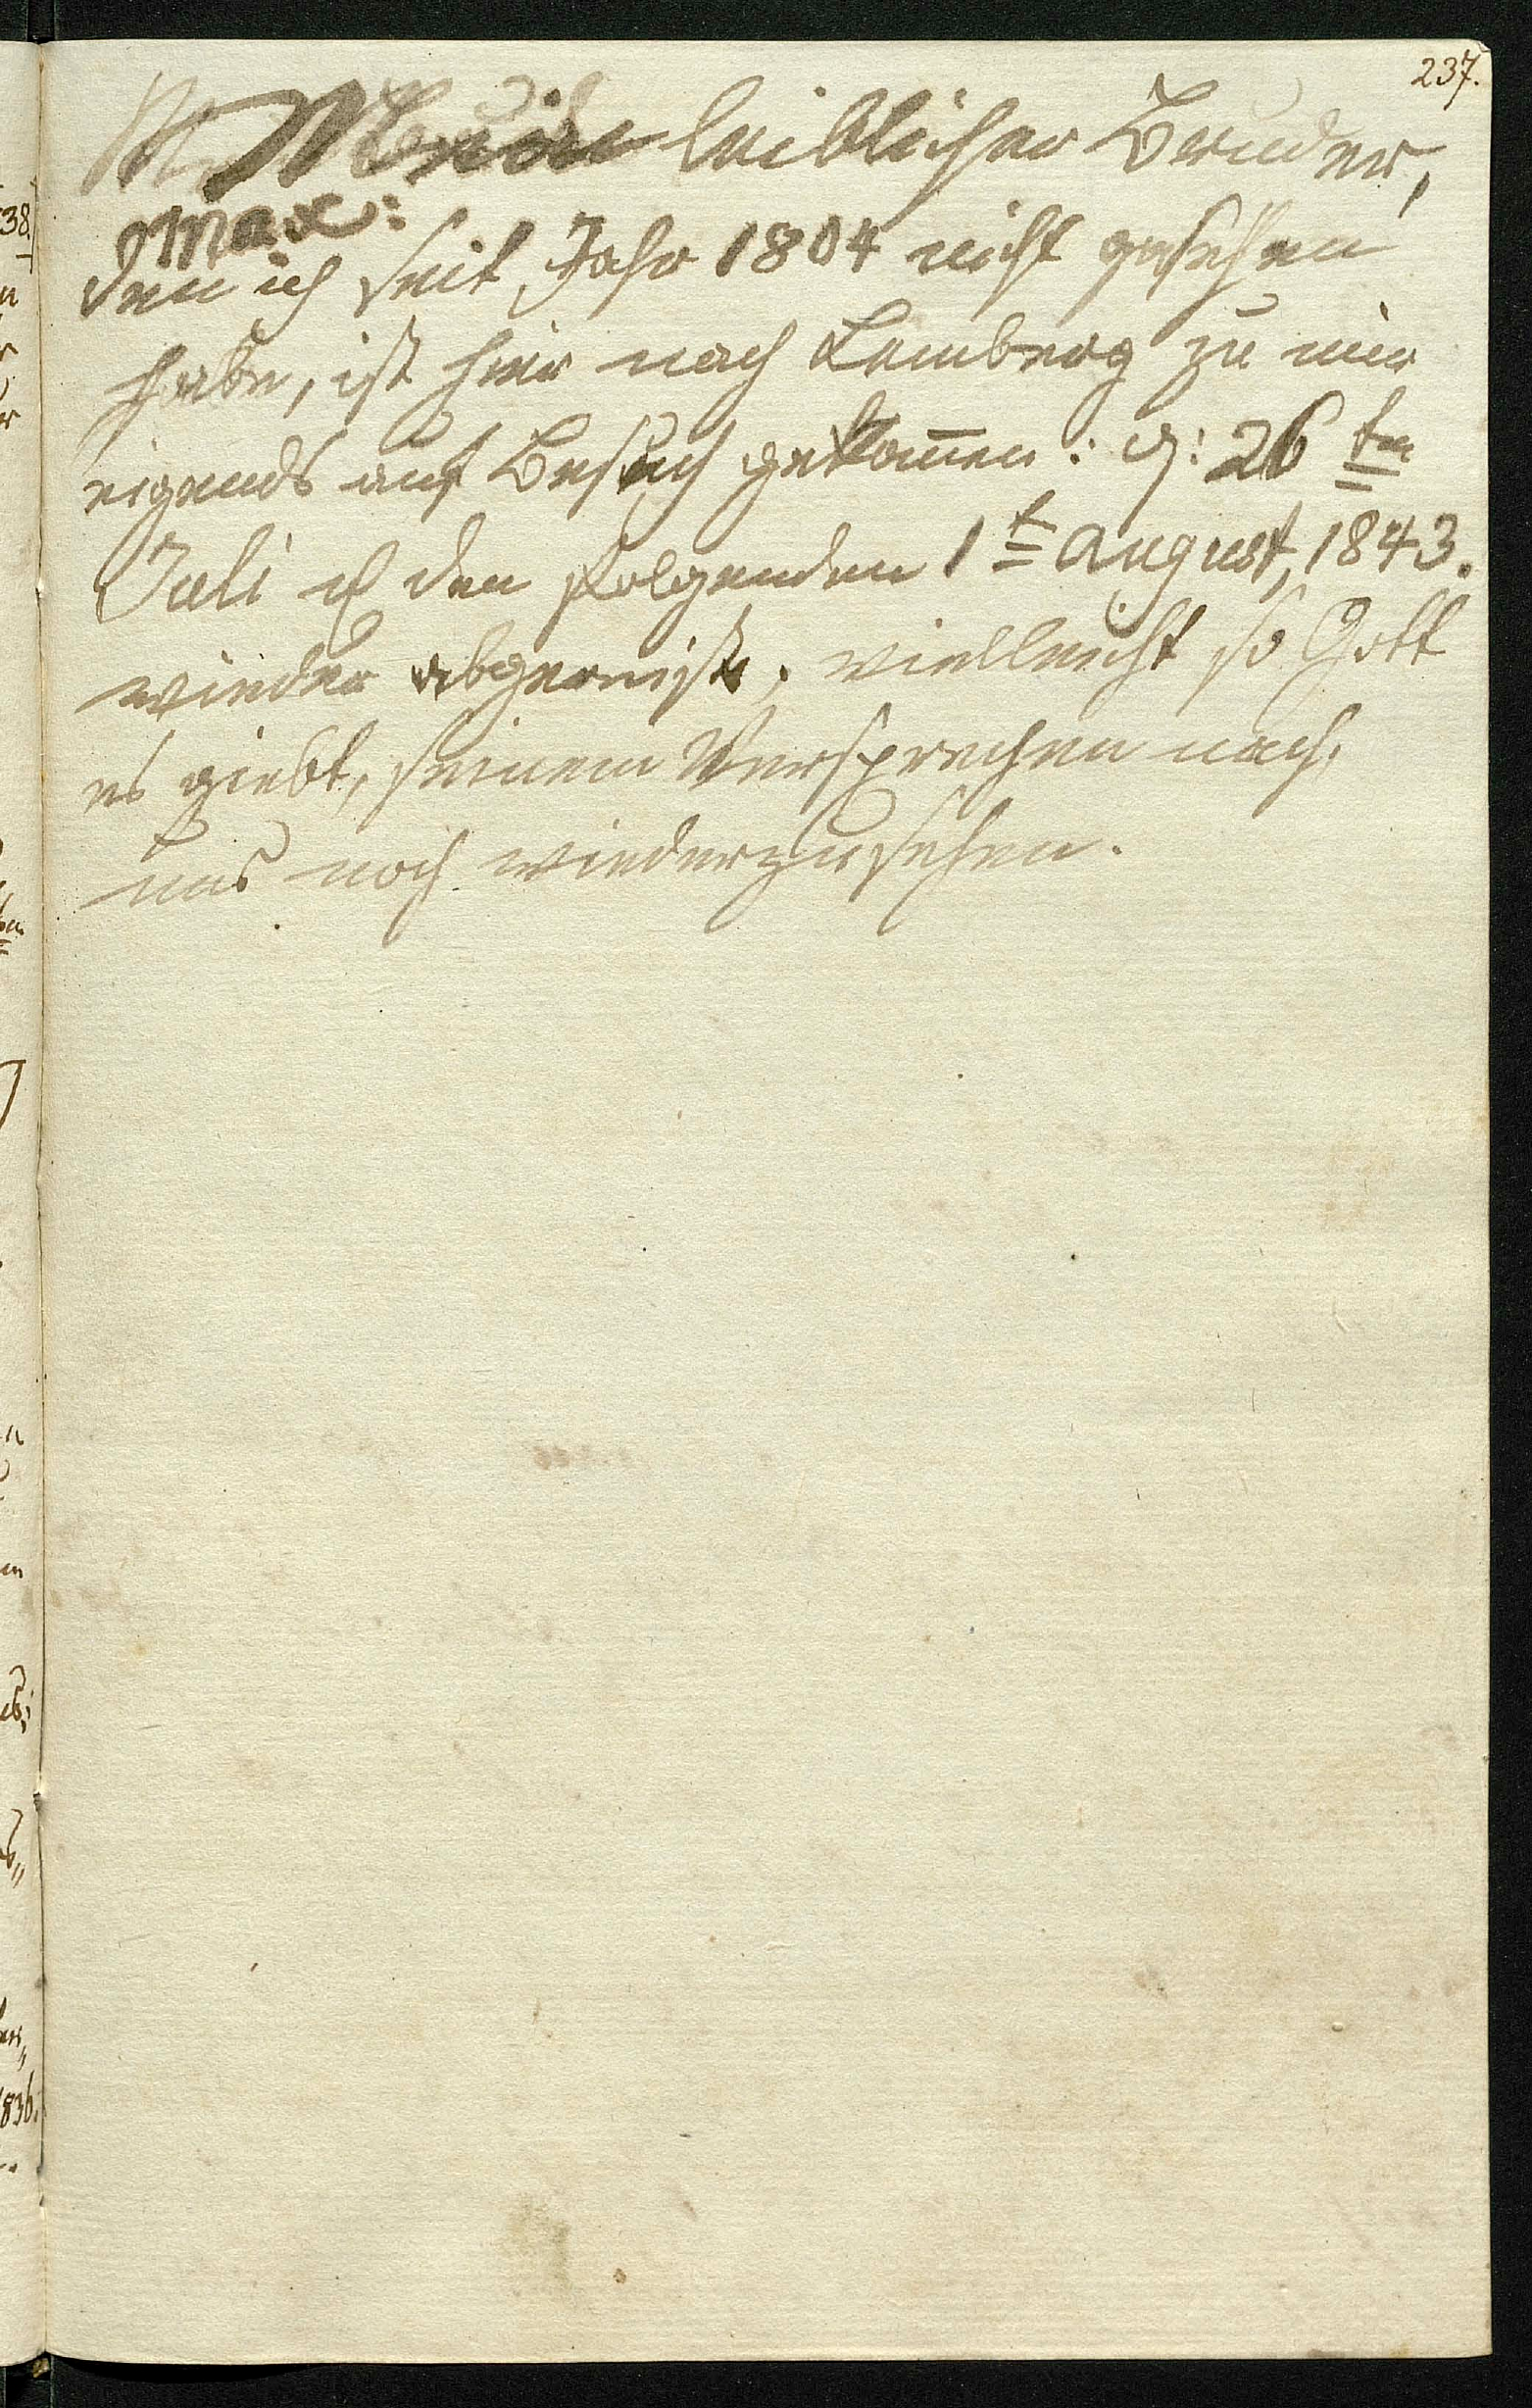 237.
Mein leiblicher Bruder,
Max:
den ich seit Jahr 1804 nicht gesehen
habe, ist hier nach Lemberg zu mir
eigends auf Besuch gekom̅en: d: 26 tn
Juli u den folgenden 1t August, 1843.
wieder abgereist, vielleicht so Gott
es giebt, seinem Versprechen nach,
uns noch wiederzusehen.